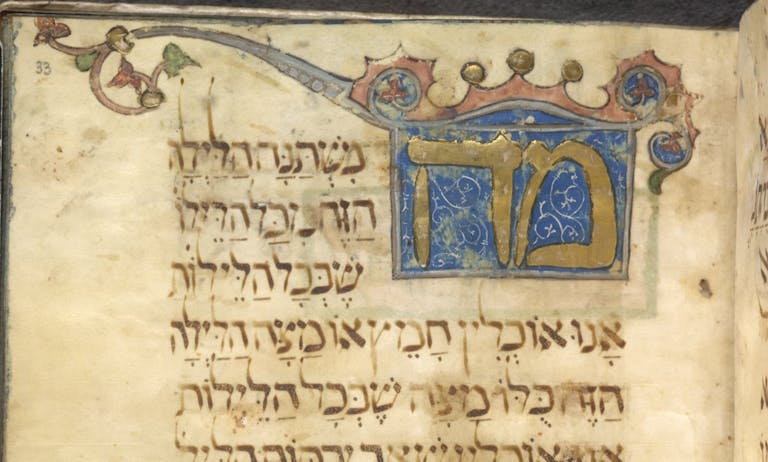 33
מה
נִשְׁתַּנָּה הַלַּיְלָה
הַזֶּה מִכָּל הַלֵּילוֹת
שֶׁבְּכָל הַלֵּילוֹת
אָנוּ אוֹכְלִין חָמֵץ אוֹ מַצָּה הַלַּיְלָה
הַזֶּה כֻּלּוֹ מַצָּה שֶׁבְּכָל הַלֵּילוֹת
אנו אוכלין שאר ירקות